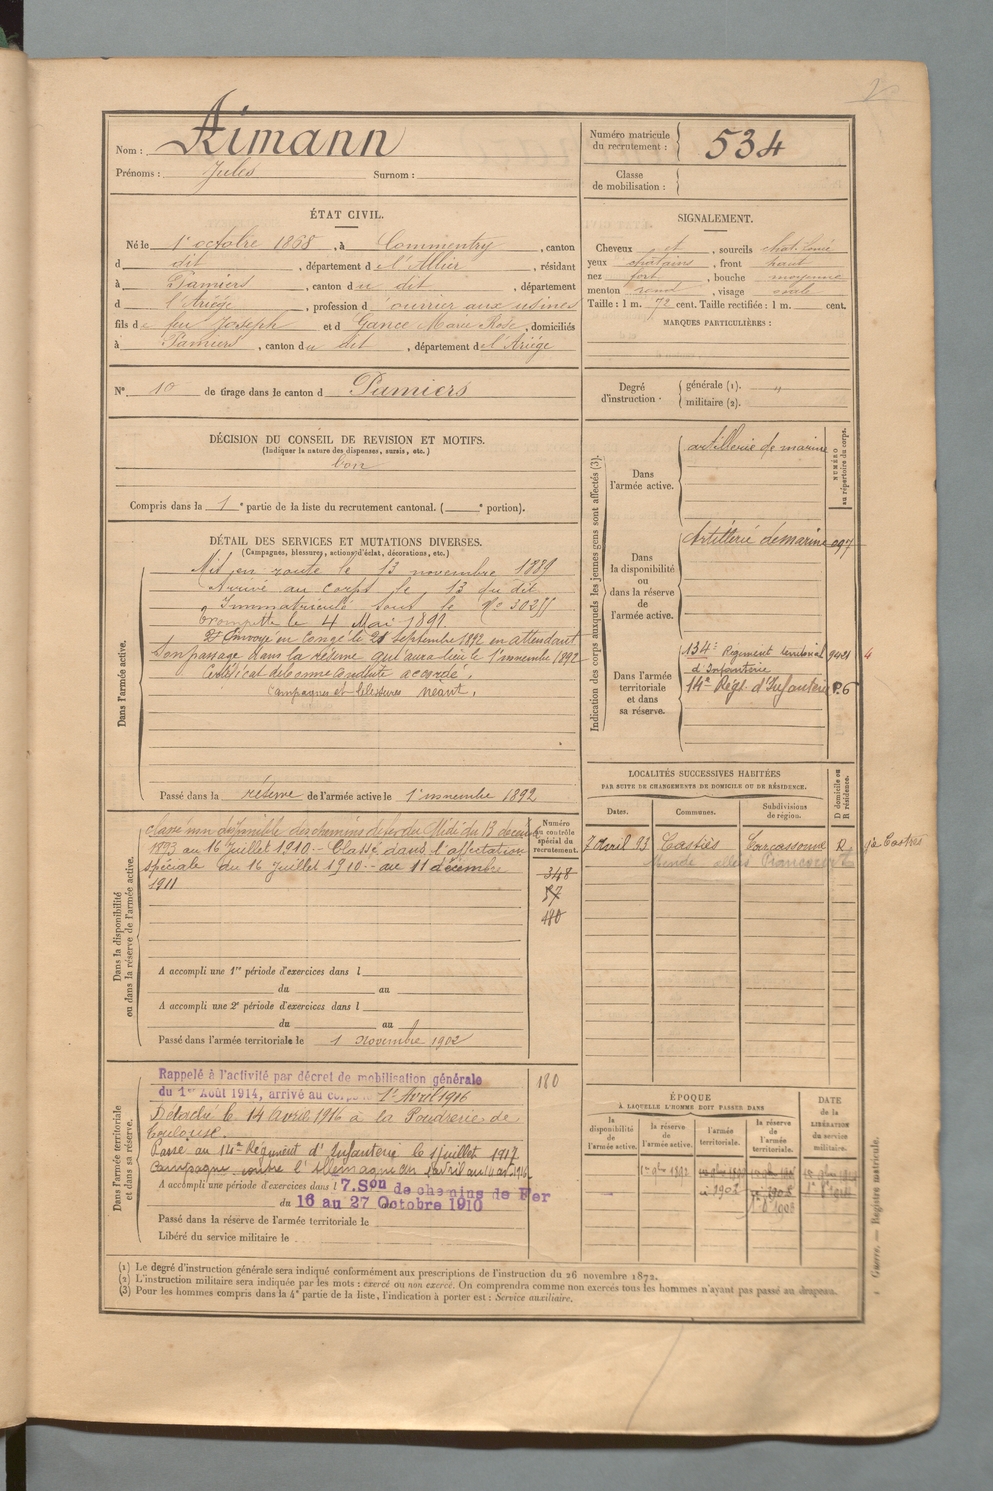 Nom : Aimann
Prénoms : Jules Surnom :
Numéro matricule du recrutement : 534
Classe de mobilisation :
ÉTAT CIVIL.
Né le 1er octobre 1868, à Commentry, canton
d dit, département de l'Allier, résidant
à Pamiers, canton du dit, département
d l'Ariège, profession d'ouvrier aux usines
fils de feu Joseph et d Gance Marie Rose, domiciliés
à Pamiers, canton du dit, département de l'Ariège
N° 10 de tirage dans le canton d Pamiers
SIGNALEMENT.
Cheveux et, sourcils chat. foncé
yeux chatains, front haut
nez fort, bouche moyenne
menton rond, visage ovale
Taille : 1 m. 72 cent. Taille rectifiée : 1 m. cent.
MARQUES PARTICULIÈRES :
Degré d'instruction : générale (1). "
militaire (2).
DÉCISION DU CONSEIL DE REVISION ET MOTIFS.
(Indiquer la nature des dispenses, sursis, etc.)
bon
Compris dans la 1e partie de la liste du recrutement cantonal. ( e portion).
DÉTAIL DES SERVICES ET MUTATIONS DIVERSES.
(Campagnes, blessures, actions d'éclat, décorations, etc.)
Dans l'armée active.
Mis en route le 13 novembre 1889
Arrivé au corps le 13 du dit
Immatriculé sous le N°
le 4 Mai 1891
Envoyé en Congé le 21 septembre 1892 en attendant
son passage dans la réserve qui aura lieu le 1er novembre 1892
Certificat de bonne conduite accordé.
Campagnes et blessures néant.
Passé dans la réserve de l'armée active le 1er novembre 1892
Indication des corps auxquels les jeunes gens sont affectés (3).
NUMÉRO au répertoire du corps.
Dans l'armée active.
artillerie de marine
Dans la disponibilité ou dans la réserve de l'armée active.
Artillerie de marine 097
Dans l'armée territoriale et dans sa réserve.
134e Régiment territorial 9421 4
d'Infanterie
14e Régt d'Infanterie P.6
Dans la disponibilité ou dans la réserve de l'armée active.
Numéro au contrôle spécial du recrutement.
Classé non disponible des chemins de fer du Midi du 13 décembre
1893 au 16 Juillet 1910 - Classé dans l'affectation
spéciale du 16 Juillet 1910 - au 11 décembre
1911
348
57
480
A accompli une 1re période d'exercices dans l
du au
A accompli une 2e période d'exercices dans l
du au
Passé dans l'armée territoriale le 1 Novembre 1902
LOCALITÉS SUCCESSIVES HABITÉES
PAR SUITE DE CHANGEMENTS DE DOMICILE OU DE RÉSIDENCE.
Dates. Communes. Subdivisions de région. D domicile ou R résidence.
7 Avril 93 Castres Carcassonne R
Dans l'armée territoriale et dans sa réserve.
Rappelé à l'activité par décret de mobilisation générale
du 1er Août 1914, arrivé au corps le 1er Avril 1916
180
Détaché le 14 Avril 1916 à la Poudrerie de
Toulouse.
Passé au 14e Régiment d'Infanterie le 1er juillet 1917
Campagne contre l'Allemagne du 1 avril au 14 avril 1916
A accompli une période d'exercices dans l 7.Son de chemins de Fer
du 16 au 27 Octobre 1910
Passé dans la réserve de l'armée territoriale le
Libéré du service militaire le
ÉPOQUE
À LAQUELLE L'HOMME DOIT PASSER DANS
DATE de la LIBÉRATION du service militaire.
la disponibilité de l'armée active.
la réserve de l'armée active.
l'armée territoriale.
la réserve de l'armée territoriale.
1er 9bre 1892
Guerre. — Registre matricule.
(1) Le degré d'instruction générale sera indiqué conformément aux prescriptions de l'instruction du 26 novembre 1872.
(2) L'instruction militaire sera indiquée par les mots : exercé ou non exercé. On comprendra comme non exercés tous les hommes n'ayant pas passé au drapeau.
(3) Pour les hommes compris dans la 4e partie de la liste, l'indication à porter est : Service auxiliaire.